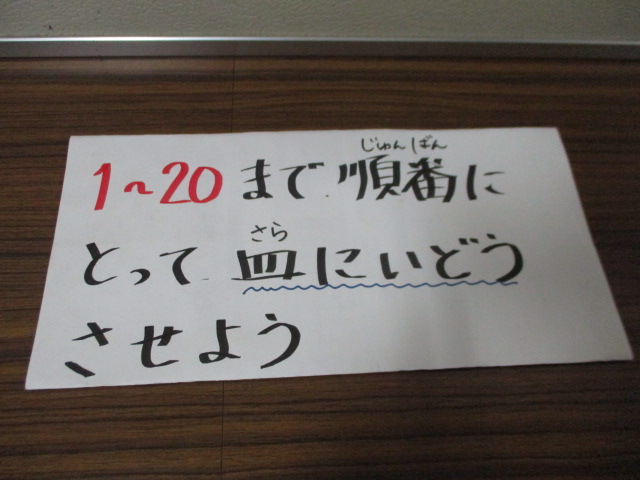 1~20まで順番に
じゅんばん
とって皿にいどう
さら
させよう